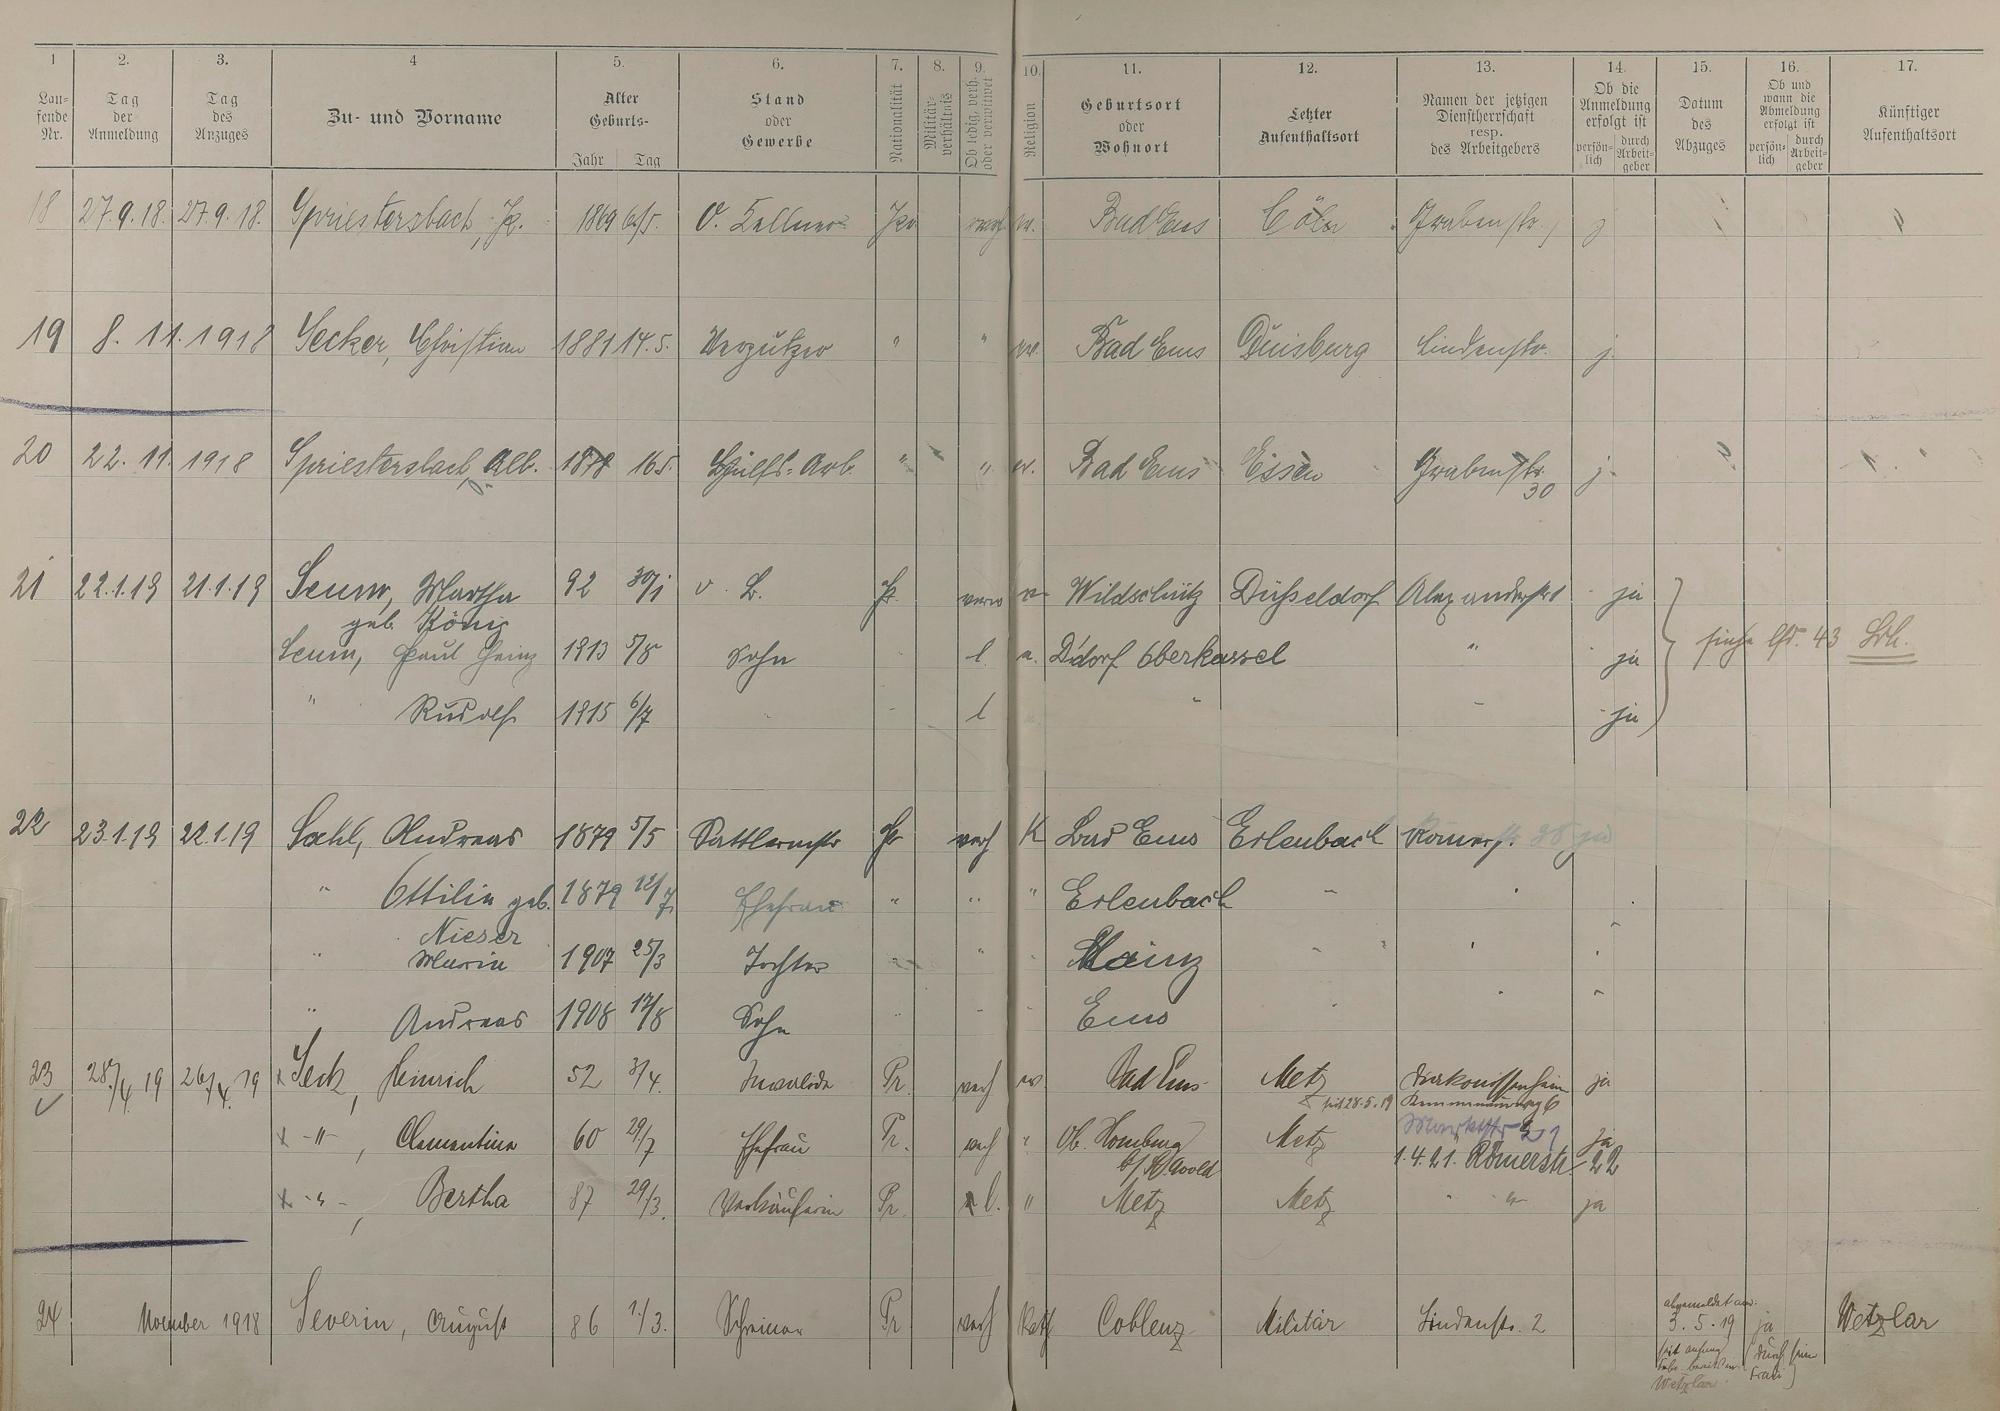 1 2. 3. 4 5. 6. 7. 8. 9. 10. 11. 12. 13. 14. 15. 16. 17.
Lau-
fende
Nr.
Tag
der
Anmeldung
Tag
des
Anzuges
Zu- und Vorname
Alter
Geburts-
Jahr Tag
Stand
oder
Gewerbe
Nationalität
Militär-
verhältnis
Ob ledig, verh.
oder verwitwet
Religion
Geburtsort
oder
Wohnort
Letzter
Aufenthaltsort
Namen der jetzigen
Dienstherrschaft
resp.
des Arbeitgebers
Ob die
Anmeldung
erfolgt ist
persön-
lich
durch
Arbeit-
geber
Datum
des
Abzuges
Ob und
wann die
Abmeldung
erfolgt ist
persön-
lich
durch
Arbeit-
geber
Künftiger
Aufenthaltsort
18 27.9.18. 27.9.18. Spriestersbach, 1869 O. Kellner verh Bad Ems Cöln Grabenstr. j
19 8. 11. 1918 Secker, Christian 1881 14.5. Verputzer " " Bad Ems Duisburg Lindenstr. j.
20 22. 11. 1918 Spriestersbach, Alb. 16 5. Hülfs-Arb. " " Bad Ems Essen Grabenstr. j.
30
21 22.1.19 21.1.19 Scum, Martha 92 30/1 Wildschütz Düsseldorf ja
geb. König
Scum, Paul Heinz 1913 5/8 Sohn l. D'dorf Oberkassel " ja siehe lfd. 43
" Rudolf 1915 6/7 l " ja
22 23.1.19 22.1.19 Sahl, Andreas 1879 5/5 Sattlermstr Pr verh K Bad Ems Erlenbach Römerstr. 28 ja
" Ottilie geb. 1879 12/7 Ehefrau " " " Erlenbach "
Nieser
" Maria 1907 25/3 Tochter " " Mainz
" Andreas 1908 17/8 Sohn Ems
23 28/4 19 26/4. 19 x Seck, Heinrich 52 3/4. Invalide Pr. verh ev Bad Ems Metz Diakonissenheim ja
seit 28.5.19
x -"-, Clementine 60 29/7 Ehefrau Pr. verh " Ob. Homburg Metz Marktstr ja
1.4.21. Römerstr 22
x -"-, Bertha 87 29/3. Verkäuferin Pr. l. " Metz Metz " " ja
24 November 1918 Severin, August 86 1/3. Schreiner Pr verh Kath Coblenz Militär Lindenstr. 2 abgemeldet am: 3.5.19 ja Wetzlar
seit anfang
(durch seine
Frau)
Wetzlar